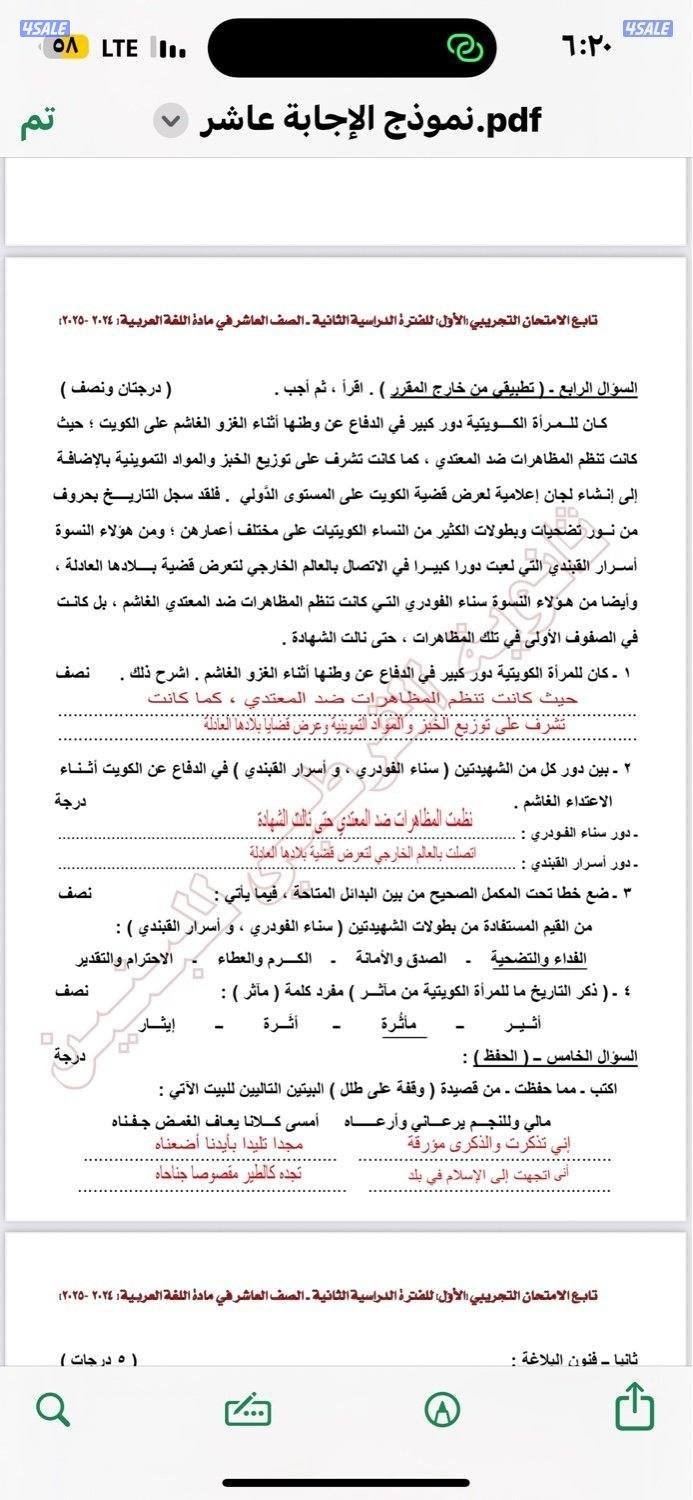 4SALE
4SALE
٥٨ LTE
٦:٢٠
نموذج الإجابة عاشر.pdf
تم
تابع الامتحان التجريبي (الأول) للفترة الدراسية الثانية ـ الصف العاشر في مادة اللغة العربية: ٢٠٢٤ -٢٠٢٥:
السؤال الرابع ـ ( تطبيقي من خارج المقرر ) . اقرأ ، ثم أجب . ( درجتان ونصف )
كـان للـمـرأة الكـــويتية دور كبير في الدفاع عن وطنها أثناء الغزو الغاشم على الكويت ؛ حيث
كانت تنظم المظاهرات ضد المعتدي ، كما كانت تشرف على توزيع الخبز والمواد التموينية بالإضافـة
إلى إنـشاء لجان إعلامية لعرض قضية الكويت على المستوى الدَّولي . فلقد سجل التاريـــخ بحروف
من نــور تضحيات وبطولات الكثير من النساء الكويتيات على مختلف أعمارهن ؛ ومن هؤلاء النسوة
أسـرار القبندي التي لعبت دورا كبيـرا في الاتصال بالعالم الخارجي لتعرض قضية بـــلادها العادلة ،
وأيضا من هـؤلاء النسوة سناء الفودري التـي كانت تنظم المظاهرات ضد المعتدي الغاشم ، بل كانـت
في الصفوف الأولى في تلك المظاهرات ، حتى نالت الشهادة .
١ ـ كان للمرأة الكويتية دور كبير في الدفاع عن وطنها أثناء الغزو الغاشم . اشرح ذلك . نصف
حيث كانت تنظم المظاهرات ضد المعتدي ، كما كانت
تشرف على توزيع الخبز والمواد التموينية وعرض قضايا بلادها العادلة
٢ ـ بين دور كل من الشهيدتين ( سناء الفودري ، و أسرار القبندي ) في الدفاع عن الكويت أثـنـاء
الاعتداء الغاشم . درجة
نظمت المظاهرات ضد المعتدي حتى نالت الشهادة
ـ دور سناء الفـودري :
اتصلت بالعالم الخارجي لتعرض قضية بلادها العادلة
ـ دور أسرار القبندي :
٣ ـ ضع خطا تحت المكمل الصحيح من بين البدائل المتاحة ، فيما يأتي : نصف
من القيم المستفادة من بطولات الشهيدتين ( سناء الفودري ، و أسرار القبندي ) :
الفداء والتضحية ـ الصدق والأمانة ـ الكـــرم والعطاء ـ الاحترام والتقدير
٤ ـ ( ذكر التاريخ ما للمرأة الكويتية من مآثـــر ) مفرد كلمة ( مآثر ) : نصف
أثـيـــر ـ مأثُـرة ـ أثَــرة ـ إيثـــار
السؤال الخامس ــ ( الحفظ ) : درجة
اكتب ـ مما حفظت ـ من قصيدة ( وقفة على طلل ) البيتين التاليين للبيت الآتي :
مالي وللنجـــم يرعـــاني وأرعـــــاه أمسى كـــلانا يعـاف الغمـض جـفـناه
إني تذكرت والذكرى مؤرقة مجدا تليدا بأيدنا أضعناه
أنى اتجهت إلى الإسلام في بلد تجده كالطير مقصوصا جناحاه
ثانوية القرطبي للبنين
تابع الامتحان التجريبي (الأول) للفترة الدراسية الثانية ـ الصف العاشر في مادة اللغة العربية: ٢٠٢٤ -٢٠٢٥:
ثانيا ــ فنون البلاغة : ( ٥ درجات )